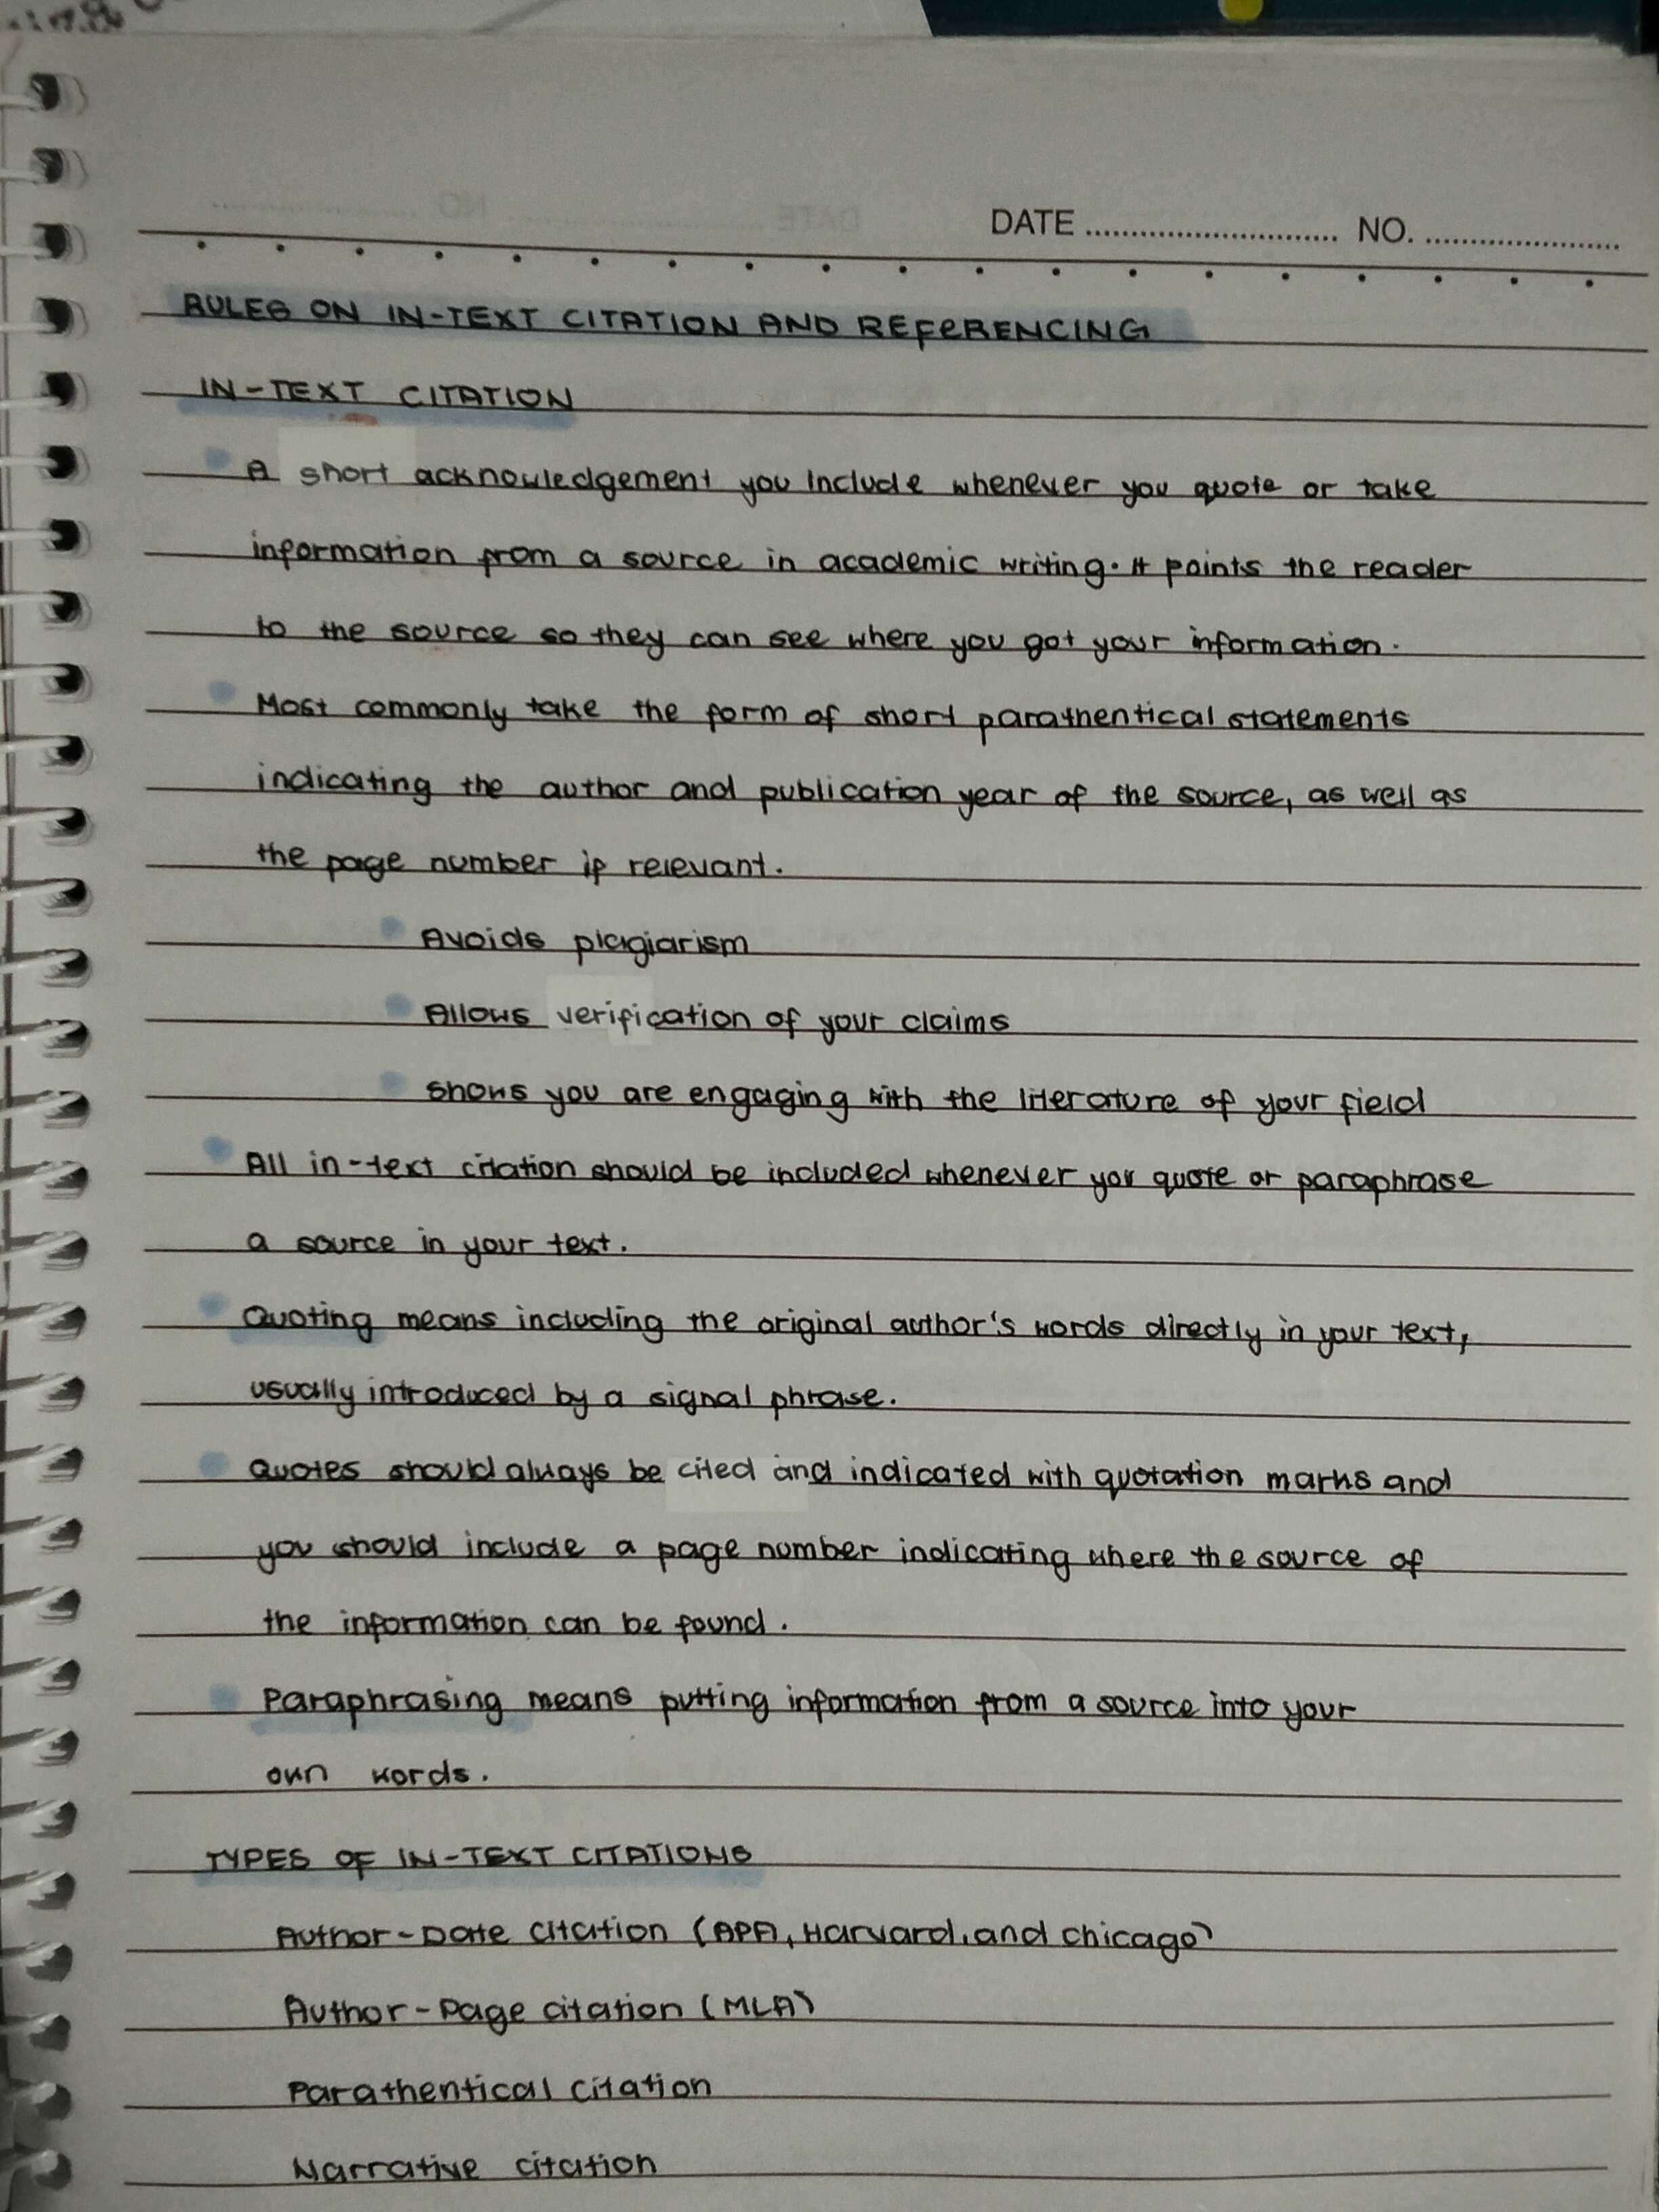 DATE ............................ NO. ......................
RULES ON IN-TEXT CITATION AND REFERENCING
IN-TEXT CITATION
A short acknowledgement you include whenever you quote or take
information from a source in academic writing. It points the reader
to the source so they can see where you got your information.
Most commonly take the form of short parathentical statements
indicating the author and publication year of the source, as well as
the page number if relevant.
Avoids plagiarism
Allows verification of your claims
shows you are engaging with the literature of your field
All in-text citation should be included whenever you quote or paraphrase
a source in your text.
Quoting means including the original author's words directly in your text,
usually introduced by a signal phrase.
Quotes should always be cited and indicated with quotation marks and
you should include a page number indicating where the source of
the information can be found.
Paraphrasing means putting information from a source into your
own words.
TYPES OF IN-TEXT CITATIONS
Author-Date citation (APA, Harvard, and chicago)
Author-Page citation (MLA)
Parathentical citation
Narrative citation